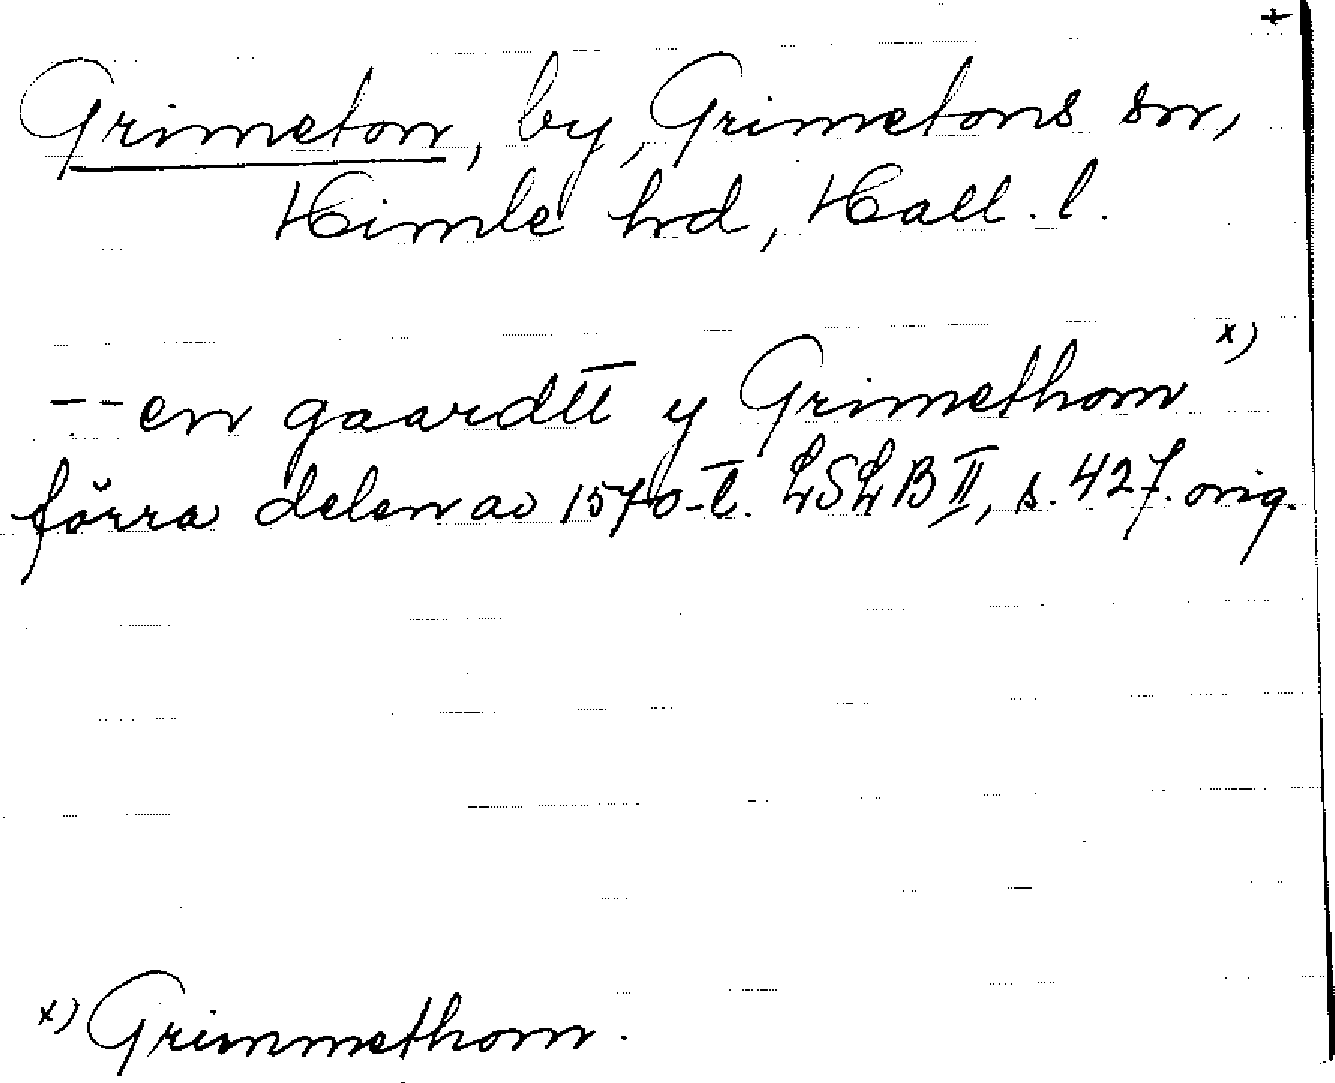 +
Grimeton, by, Grimetons sn,
Himle hrd, Hall. l.
-- en gaardtt y Grimethom x)
förra delen av 1570-t. LSLB II, s. 427. orig.
x) Grimmethom.